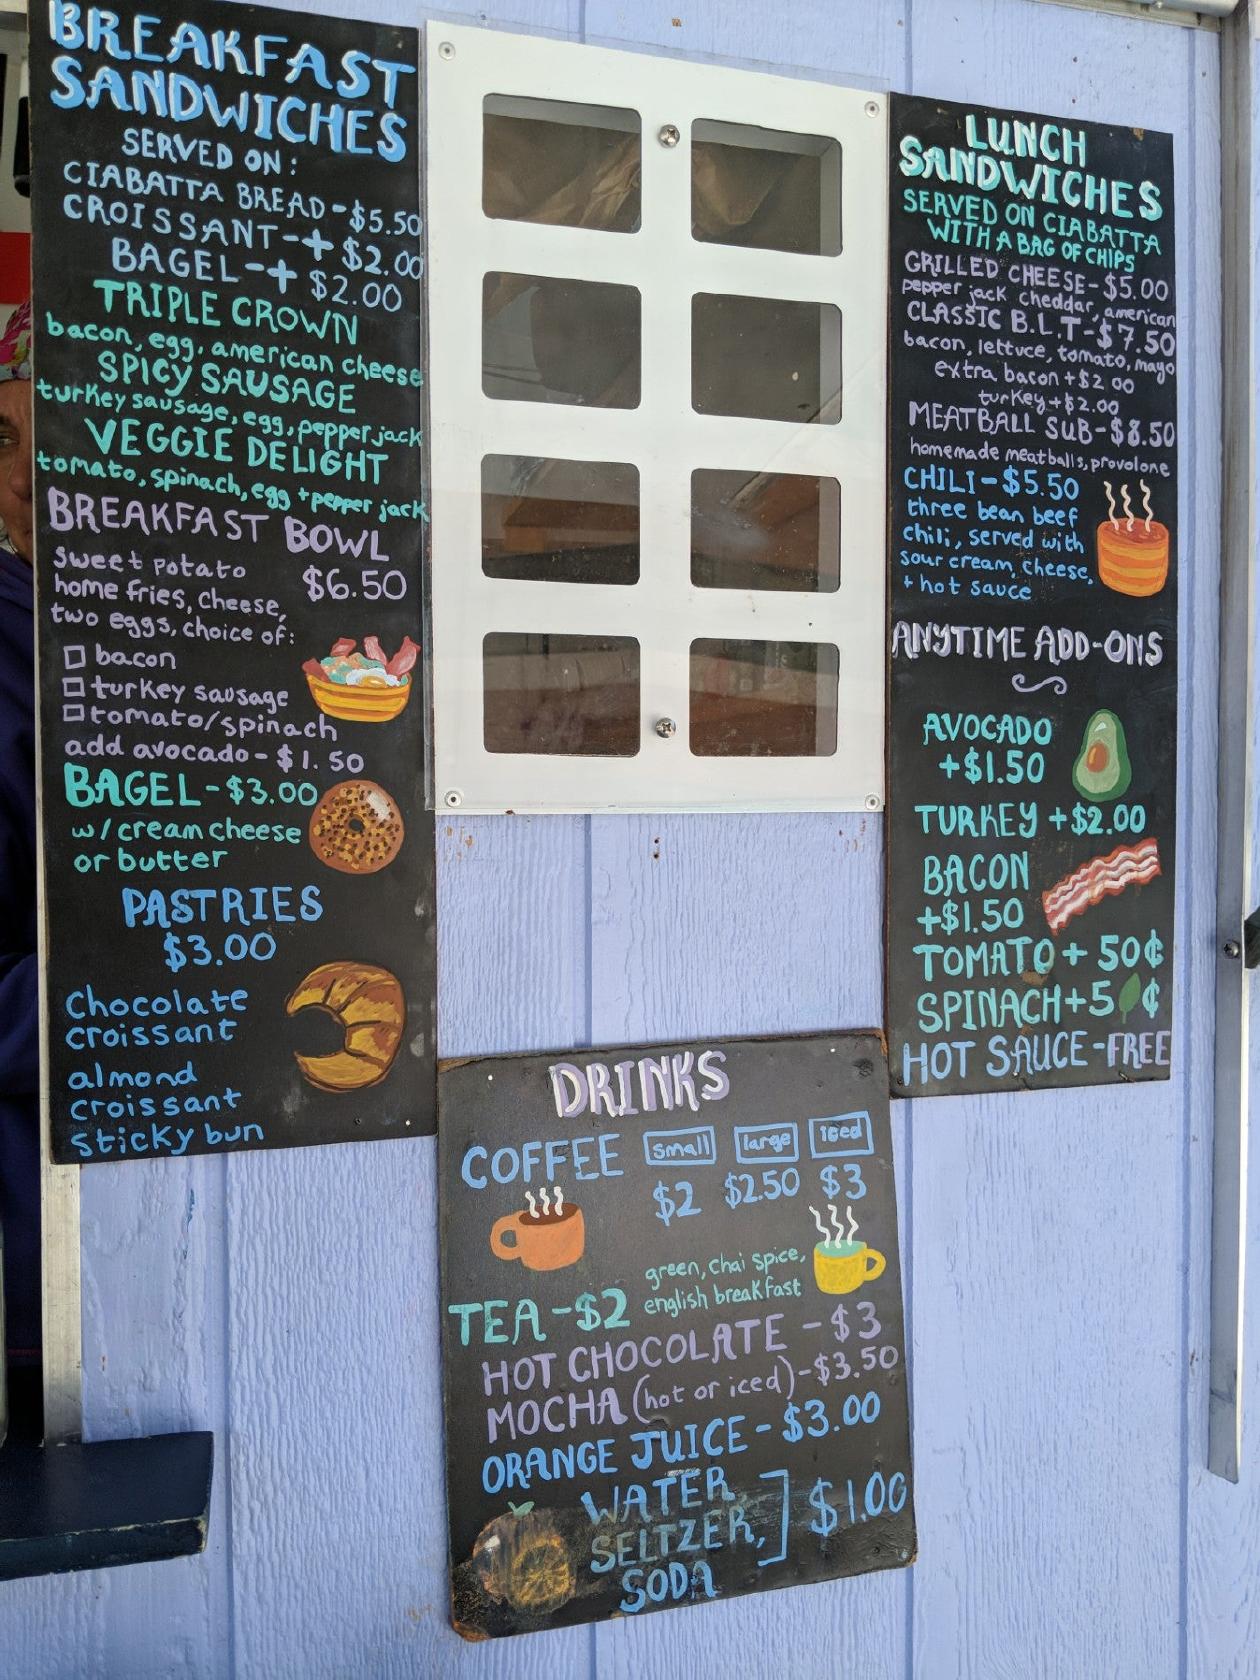 BREAKFAST
SANDWICHES
SERVED ON:
CIABATTA BREAD-$5.50
CROISSANT-+$2.00
BAGEL-+$2.00
TRIPLE CROWN
bacon, egg, american cheese
SPICY SAUSAGE
turkey sausage, egg, pepper jack
VEGGIE DELIGHT
tomato, spinach, egg + pepper jack
BREAKFAST BOWL
$6.50
sweet potato
home fries, cheese,
two eggs, choice of:
bacon
turkey sausage
tomato/spinach
add avocado-$1.50
BAGEL-$3.00
w/cream cheese
or butter
PASTRIES
$3.00
Chocolate
croissant
almond
croissant
sticky bun
LUNCH
SANDWICHES
SERVED ON CIABATTA
WITH A BAG OF CHIPS
GRILLED CHEESE-$5.00
pepper jack cheddar, american
CLASSIC B.L.T-$7.50
bacon, lettuce, tomato, mayo
extra bacon+$2.00
turkey+$2.00
MEATBALL SUB-$8.50
homemade meatballs, provolone
CHILI-$5.50
three bean beef
chili, served with
sour cream, cheese,
+ hot sauce
ANYTIME ADD-ONS
AVOCADO
+$1.50
TURKEY +$2.00
BACON
+$1.50
TOMATO+50¢
SPINACH+50¢
HOT SAUCE-FREE
DRINKS
COFFEE small large iced
$2 $2.50 $3
green, chai spice,
english breakfast
TEA-$2
HOT CHOCOLATE-$3
MOCHA (hot or iced)-$3.50
ORANGE JUICE-$3.00
WATER
SELTZER, $1.00
SODA